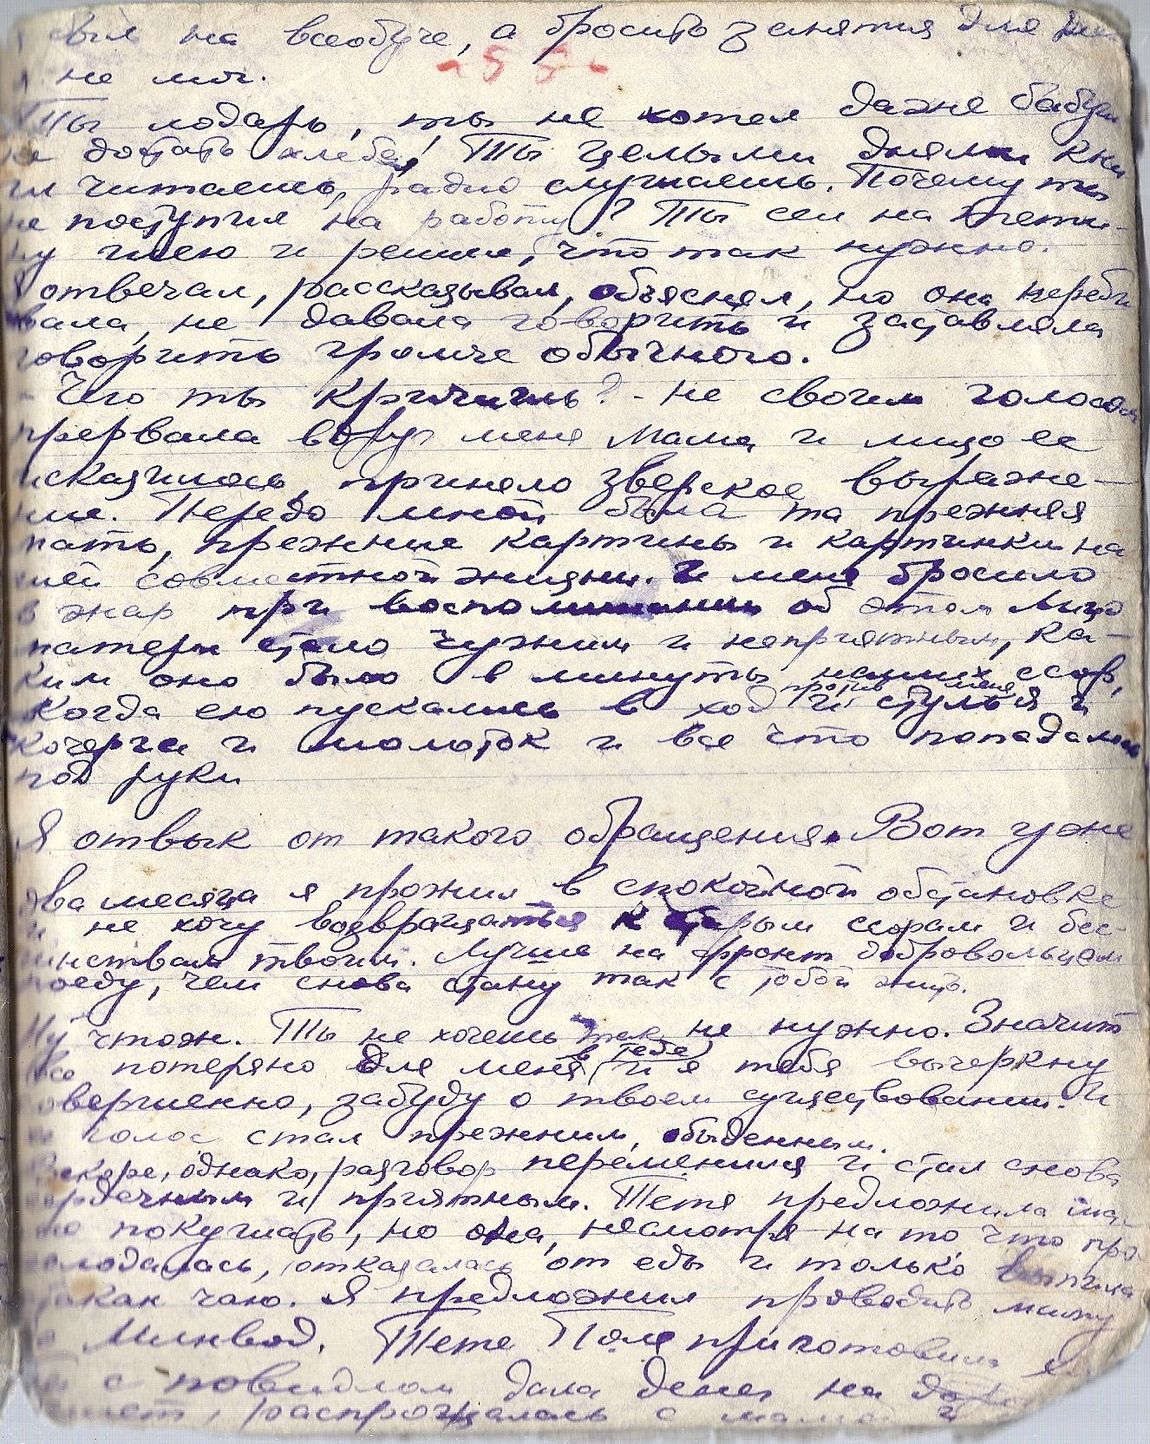 был на всеобуче, а бросить занятия для
я не мог.
- 5 5 -
Ты лодарь, ты не хотел даже бабушке
достать хлеба! Ты целыми днями кни
ги читаешь, радио слушаешь. Почему ты
не поступил на работу? Ты сел на тети-
ну шею и решил, что так нужно.
Я отвечал, рассказывал, объяснял, но она переби
вала, не давала говорить и заставляла
говорить громче обычного.
- Чего ты кричишь? - не своим голосом
прервала вдруг меня мама и лицо ее
исказилось, приняло зверское выраже-
ние. Передо мной была та прежняя
мать, прежние картины и картинки на
шей совместной жизни. И меня бросило
в жар при воспоминании об этом. Лицо
матери стало чужим и неприятным, ка-
ким оно было в минуты наших ссор,
против меня
Когда ею пускались в ход и стулья и
кочерги и молоток и все что попадалось
под руки
Я отвык от такого обращения. Вот уже
два месяца я прожил в спокойной обстановке
и не хочу возвращаться к старым ссорам и бес-
чинствам твоим. Лучше на фронт добровольцем
поеду, чем снова стану так с тобой жить.
Ну чтож. Ты не хочешь так не нужно. Значит
в тебе
все потеряно для меня и я тебя вычеркну
совершенно, забуду о твоем существовании. И
голос стал прежним, обыденным.
Вскоре, однако, разговор переменился и стал снова
сердечным и приятным. Тетя предложила ма
ме покушать, но она, несмотря на то что про
голодалась, отказалась от еды и только выпила
стакан чаю. Я предложил проводить маму
Минвод. Тетя Поля приготовила
с повидлом, дала денег на
распрощалась с мамой и